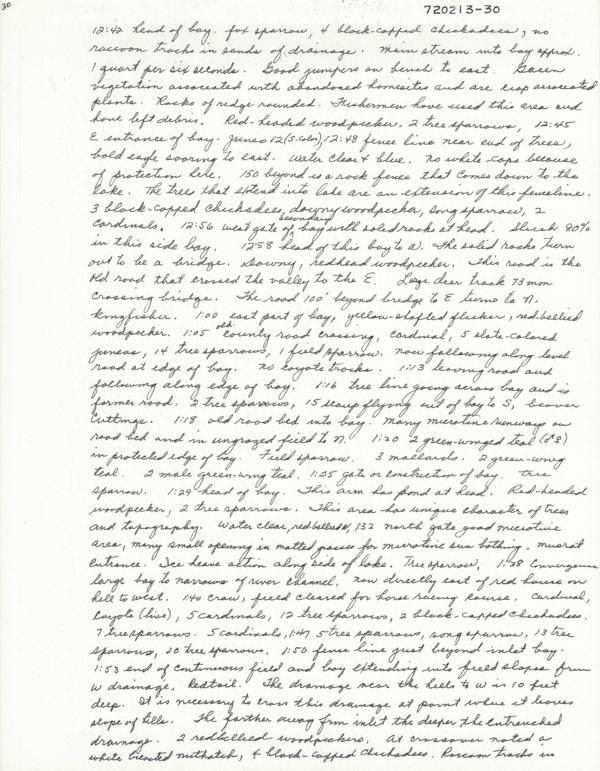 30
720213-30
12:42 head of bay. fox sparrow, 4 black-capped chickadees, no
raccoon tracks in sands of drainage. Main stream into bay approx.
1 quart per six seconds. Good junipers on bench to east. Green
vegetation associated with abandoned homesites and are crop associated
plants. Rocks of ridge rounded. Fishermen have used this area and
have left debris. Red-headed woodpecker. 2 tree sparrows, 12:45
E entrance of bay. Junco 12 (S. Color), 12:48 fence line near end of trees,
bald eagle soaring to east. Water clear & blue. No white-caps because
of protection here. 150 beyond is a rock fence that comes down to the
lake. The trees that extend into lake are an extension of this fenceline.
3 black-capped chickadees, downy woodpecker, song sparrow, 2
cardinals. 12:56 west gate of secondary bay with solid rocks at head. Slush 80%
in this side bay. 12:58 head of this bay to W. The solid rocks turn
out to be a bridge. Downy, redhead woodpecker. This road is the
old road that crossed the valley to the E. Large deer track 73 mm
crossing bridge. The road 100' beyond bridge to E turns to N.
Kingfisher. 1:00 east part of bay, yellow-shafted flicker, red-bellied
woodpecker. 1:05 old county road crossing, cardinal, 5 slate-colored
juncos, 14 tree sparrows, 1 field sparrow. Now following along level
road at edge of bay. No coyote tracks. 1:13 leaving road and
following along edge of bay. 1:16 tree line going across bay and is
former road. 2 tree sparrows, 15 scaup flying out of bay to S, beaver
cuttings. 1:18 old road bed into bay. Many microtine runways on
road bed and in ungrazed field to N. 1:20 2 green-winged teal (♂♀)
in protected edge of bay. Field sparrow. 3 mallards. 2 green-wing
teal. 2 male green-wing teal. 1:25 gate or constriction of bay. Tree
sparrow. 1:29 head of bay. This arm has pond at head. Red-headed
woodpecker, 2 tree sparrows. This area has unique character of trees
and topography. Water clear, red bellied, 1:32 north gate good microtine
area, many small opening in matted grasses for microtine sun bathing. Muskrat
entrance. Ice heave action along side of lake. Tree sparrow, 1:38 Convergence
large bay to narrows of river channel. Now directly east of red house on
hill to west. 1:40 crow, field cleared for horse racing course. Cardinal,
Coyote (live), 5 cardinals, 12 tree sparrows, 2 black-capped chickadees.
7 tree sparrows. 5 cardinals, 1:47 5 tree sparrows, song sparrow, 13 tree
sparrows, 20 tree sparrows. 1:50 fence line just beyond inlet bay.
1:53 end of continuous field and bay extending into field slopes from
W drainage. Redtail. The drainage near the hills to W is 10 feet
deep. It is necessary to cross this drainage at point where it leaves
slope of hills. The farther away from inlet the deeper the entrenched
drainage. 2 redbellied woodpeckers. At crossover noted a
white breasted nuthatch, 4 black-capped chickadees. Raccoon tracks in